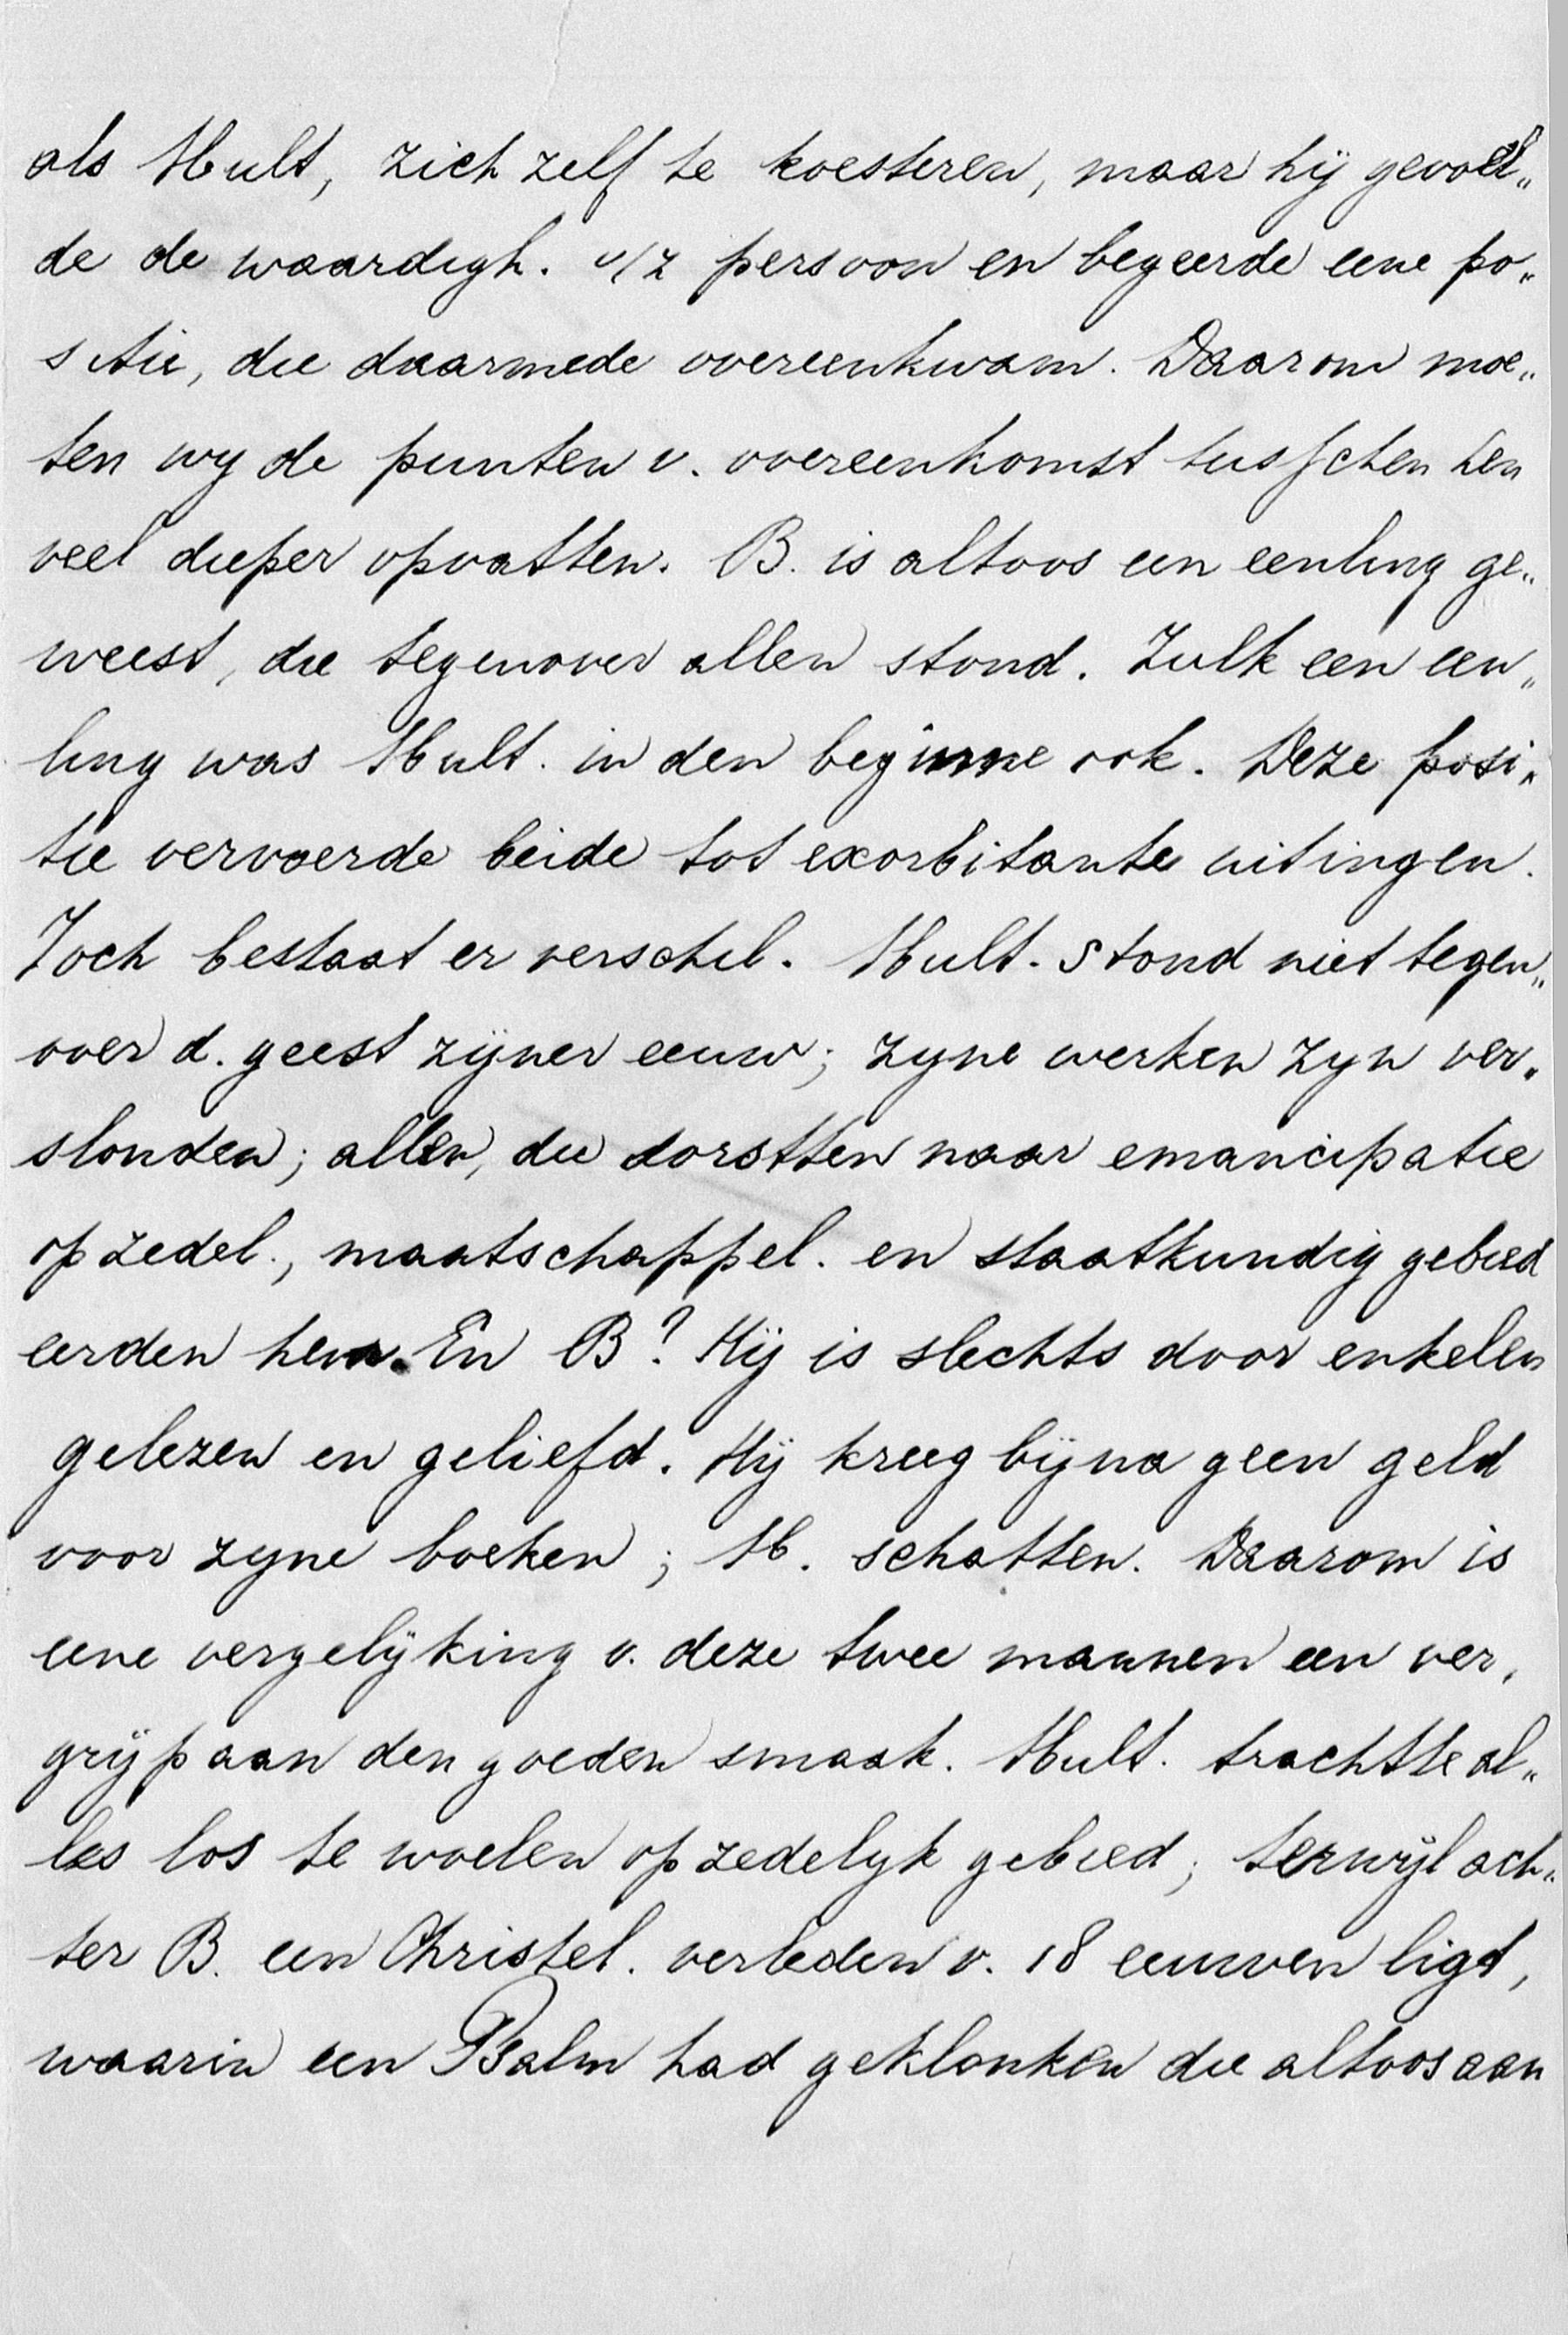 als Mult, zich zelf te koesteren, maar hij gevoel„
de de waardigh. v/z persoon en begeerde eene po„
sitie, die daarmede overeenkwam. Daarom moe„
ten wy de punten v. overeenkomst tusschen hen
veel dieper opvatten. B. is altoos een eenling ge„
weest, die tegenover allen stond. Zulk een een„
ling was Mult. in den beginne ook. Deze posi„
tie vervoerde beide tot exorbitante uitingen.
Toch bestaat er verschil. Mult. stond niet tegen„
over d. geest zijner eeuw; zyne werken zyn ver„
slonden; allen, die dorstten naar emancipatie
op zedel., maatschappel. en staatkundig gebied
eerden hem. En B? Hij is slechts door enkelen
gelezen en geliefd. Hij kreeg bijna geen geld
voor zyne boeken; M. schatten. Daarom is
eene vergelijking v. deze twee mannen een ver„
grijp aan den goeden smaak. Mult. trachtte al„
les los te woelen op zedelyk gebied; terwijl ach„
ter B. een Christel. verleden v. 18 eeuwen ligt,
waarin een Psalm had geklonken die altoos aan